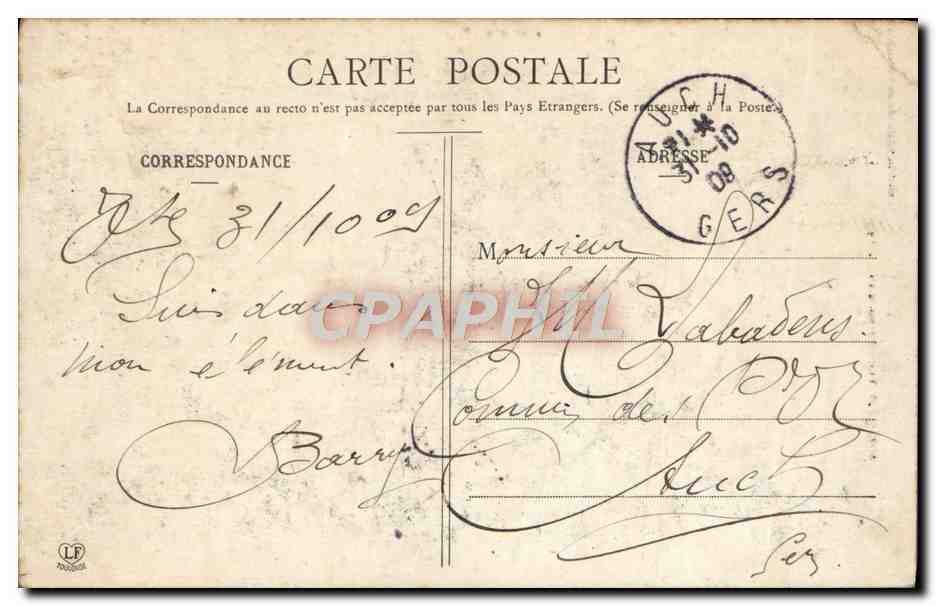 CARTE POSTALE
La Correspondance au recto n'est pas acceptée par tous les Pays Etrangers. (Se renseigner à la Poste.)
CORRESPONDANCE
ADRESSE
AUCH
31-10
09
GERS
31/10 09
Suis dans
mon élément.
Barry
Monsieur
Labadens
Commis des
Auch
Gers
CPAPHIL
LF
TOULOUSE